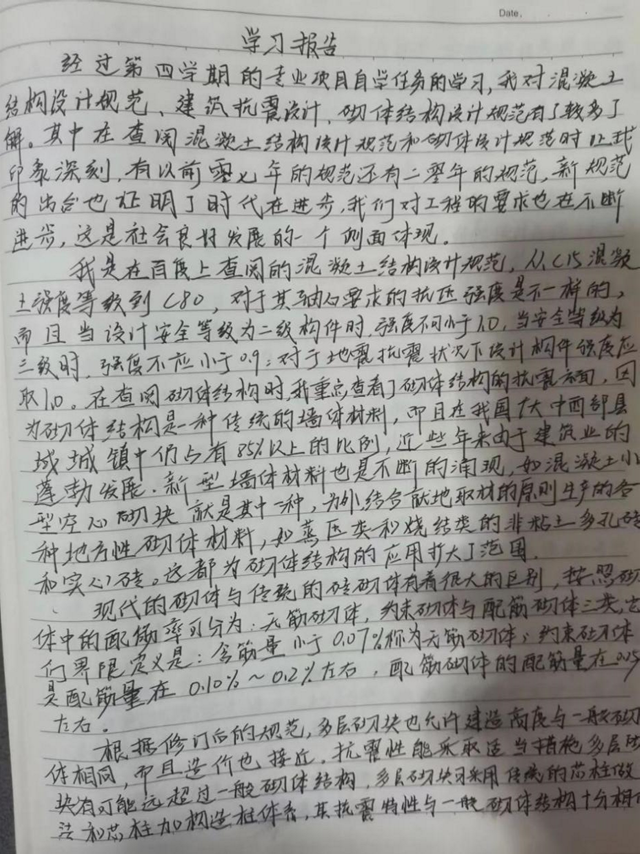 Date.
学习报告
经过第四学期的专业项目自学任务的学习,我对混凝土
结构设计规范、建筑抗震设计、砌体结构设计规范有了较多了
解。其中在查阅混凝土结构设计规范和砌体设计规范时让我
印象深刻,有以前零七年的规范还有二零年的规范,新规范
的出台也证明了时代在进步,我们对工程的要求也在不断
进步,这是社会良好发展的一个侧面体现。
我是在百度上查阅的混凝土结构设计规范,从C15混凝
土强度等级到C80,对于其轴心要求的抗压强度是不一样的,
而且当设计安全等级为二级构件时,强度不小于1.0,当安全等级为
三级时,强度不应小于0.9;对于地震抗震状况下设计构件强度应
取1.0。在查阅砌体结构时,我重点查看了砌体结构的抗震方面,因
为砌体结构是一种传统的墙体材料,而且在我国广大中西部县
城城镇中仍占有85%以上的比例,近些年来由于建筑业的
蓬勃发展.新型墙体材料也是不断的涌现,如混凝土小
型空心砌块就是其中一种,另外结合就地取材的原则生产的各
种地方性砌体材料,如蒸压类和烧结类的非粘土多孔砖
和实心砖。这都为砌体结构的应用扩大了范围.
现代的砌体与传统的砖砌体有着很大的区别,按照砌
体中的配筋率可分为:无筋砌体,约束砌体与配筋砌体三类,它
们界限定义是:含筋量小于0.07%称为无筋砌体;约束砌体
是配筋量在0.10%~0.12%左右,配筋砌体的配筋量在
左右。
根据修订后的规范,多层砌块也允许建造高度与一般砌
体相同,而且造价也接近,抗震性能采取适当措施多层砌
块有可能远超过一般砌体结构,多层砌块可采用传统的芯柱做
法和芯柱加构造柱体系,其抗震特性与一般砌体结构十分相